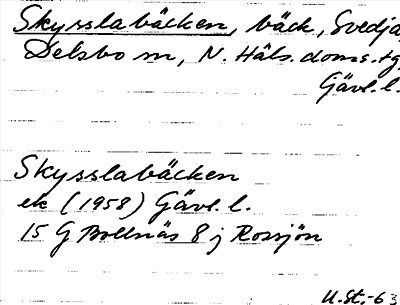 Skysslabäcken, bäck, Svedja
Delsbo sn, N. Häls. doms.tg
Gävl.l.
Skysslabäcken
ek (1958) Gävl.l.
15 G Bollnäs 8 j Rossjön
U.St.-63